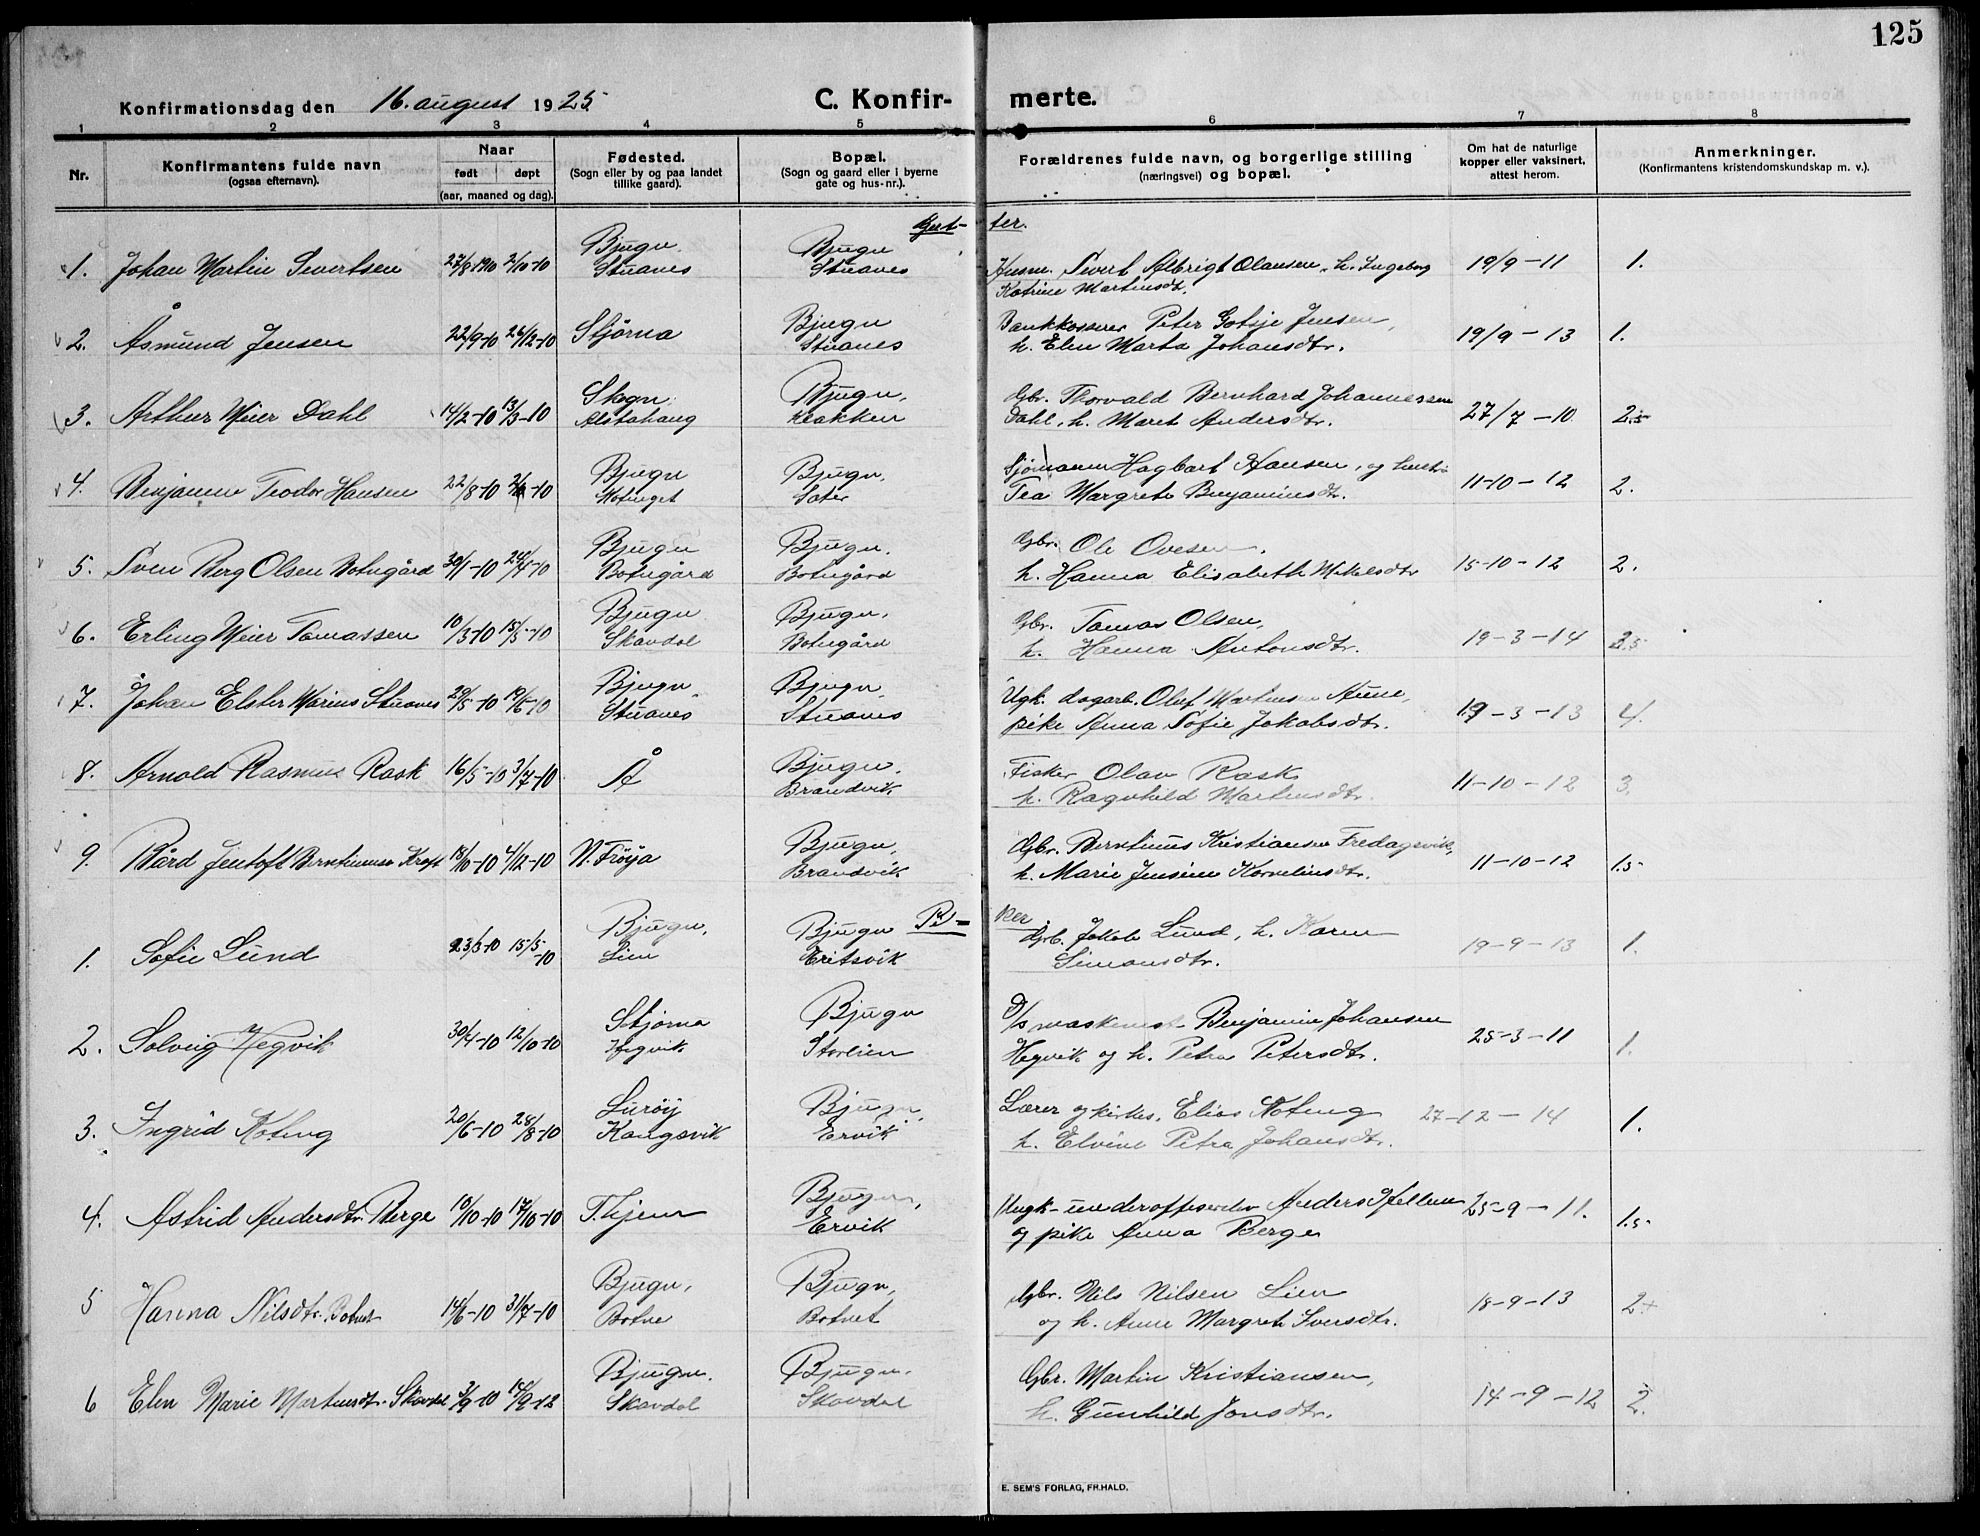 125
Konfirmationsdag den 16. august 1925 C. Konfir- merte.
1 2 3 4 5 6 7 8
Nr. Konfirmantens fulde navn (ogsaa efternavn). Naar født døpt (aar, maaned og dag). Fødested. (Sogn eller by og paa landet tillike gaard). Bopæl. (Sogn og gaard eller i byerne gate og hus-nr.). Forældrenes fulde navn, og borgerlige stilling (næringsvei) og bopæl. Om hat de naturlige kopper eller vaksinert, attest herom. Anmerkninger. (Konfirmantens kristendomskundskap m. v.).
Gut- ter.
Bjugn Bjugn
1. Johan Martin Severtsen 27/8 1910 2/10-10 Stuanes Stuanes Husm. Severt Albrigt Olausen, h. Ingeborg 19/9-11 1.
Katrine Martinsdt.
Bjugn Bankkasserer Peter Gotsje Jensen,
2. Åsmund Jensen 22/9-10 26/12-10 Stjørna Stuanes h. Elen Marta Johansdtr. 19/9-13 1.
Skogn Bjugn, Gbr. Thorvald Bernhard Johannessen
3. Arthur Meier Dahl 14/2-10 13/3-10 Alstahaug Klakken Dahl, h. Maret Andersdtr. 27/7-10 2.5
Bjugn Bjugn, Sjømann Hagbart Hansen, og hustru
4. Benjamin Teodor Hansen 22/8-10 -10 Motinget Sæter Tea Margrete Benjaminsdtr. 11-10-12 2.
Bjugn Bjugn. Gbr. Ole Ovesen,
5. Sven Berg Olsen Botngård 30/1-10 24/4-10 Botngård Botngård h. Hanna Elisabeth Mikelsdtr 15-10-12 2.
Bjugn Bjugn, Gbr. Tomas Olsen,
6. Erling Meier Tomassen 10/3-10 15/5-10 Skavdal Botngård h. Hanna Antonsdtr. 19-3-14 2.5
Bjugn, Bjugn, Ugk. dagarb. Oluf Martinsen Aune,
7. Johan Elster Marius Stuanes 29/5-10 19/6-10 Stuanes Stuanes pike Anna Sofie Jakobsdtr. 19-3-13 4.
Bjugn, Fisker Olav Rask
8. Arnold Rasmus Rask 16/5-10 3/7-10 Å Brandvik h. Ragnhild Martinsdtr. 11-10-12 3.
Bjugn, Gbr. Berntinus Kristiansen Fredagsvik,
9. Bård Jentoft Berntinusen Kraft 18/10-10 4/12-10 N. Frøya Brandvik h. Marie Jensine Kornelinsdtr. 11-10-12 1.5
Pi- ker
Bjugn, Bjugn Gbr. Jakob Lund, h. Karen
1. Sofie Lund 23/3-10 15/5-10 Lien Eritsvik Simonsdtr. 19-9-13 1.
Stjørna Bjugn D/s maskinist Benjamin Johansen
2. Solveig Hegvik 30/4-10 12/10-10 Hegvik Storlien Hegvik og h. Petra Petersdtr. 25-3-11 1.
Lurøy Bjugn, Lærer og kirkes. Elias Koting 27-12-14
3. Ingrid Koting 20/6-10 28/8-10 Kongsvik Ervik h. Elvine Petra Johansdtr. 1.
Bjugn, Ungk. underoffiserelev Anders Hellem 25-9-11.
4. Astrid Andersdtr. Berge 10/10-10 17/10-10 T.hjem Ervik og pike Anna Berge 1.5
Bjugn, Bjugn, Gbr. Nils Nilsen Lien
5 Hanna Nilsdtr. Botnet 14/6-10 31/7-10 Botne Botnet og h. Anne Margret Iversdtr. 18-9-13 2+
Bjugn. Bjugn. Gbr. Martin Kristiansen,
6 Elen Marie Martinsdtr. Skavdal 3/9-10 -12 Skavdal Skavdal h. Gunhild Jonsdtr. 14-9-12 2.
E. SEM'S FORLAG, FR.HALD.